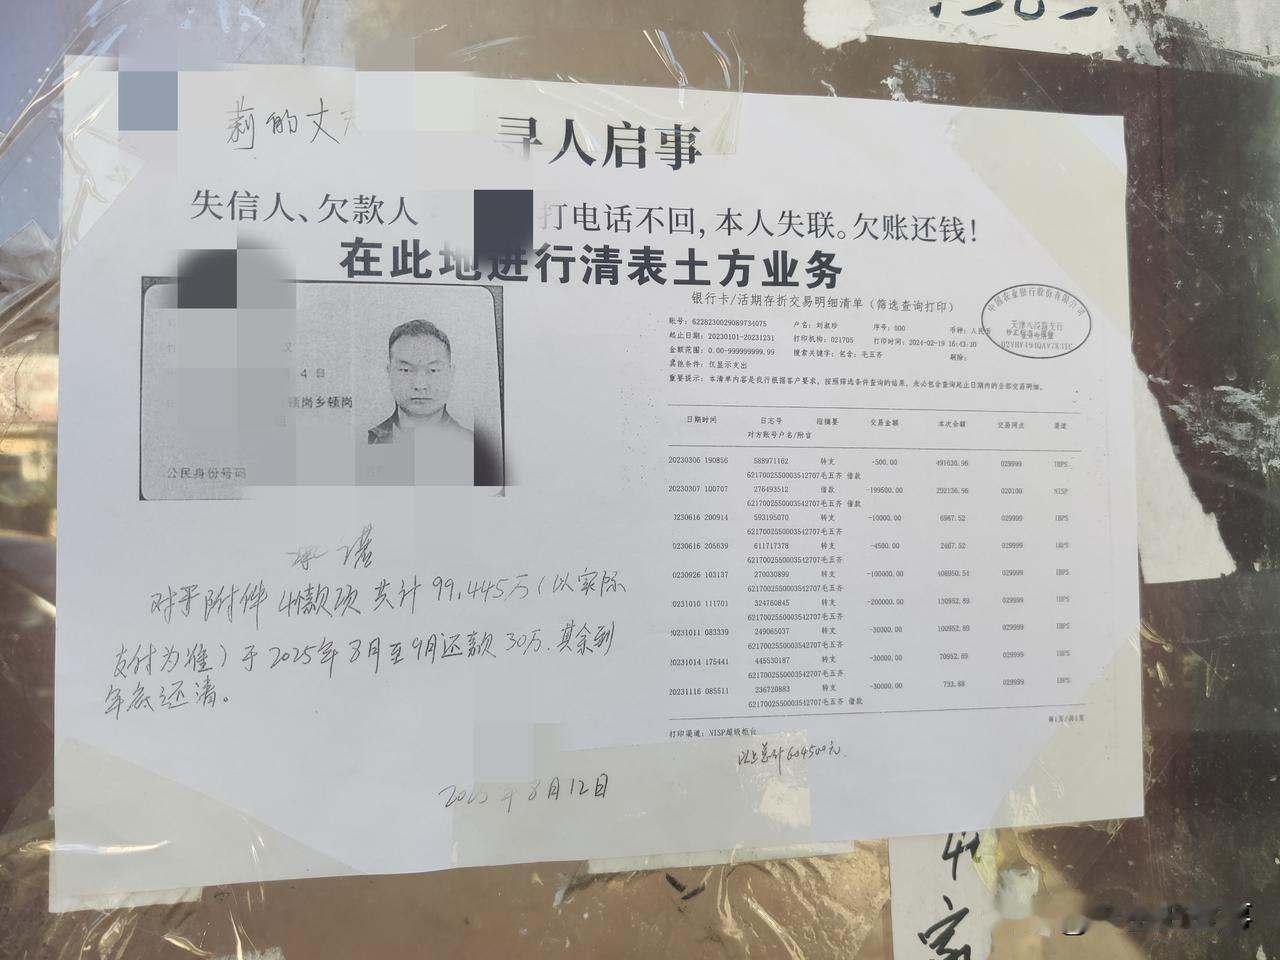 莉的丈夫
寻人启事
失信人、欠款人
打电话不回,本人失联。欠账还钱!
在此地进行清表土方业务
汉
4日
顿岗乡顿岗
组
公民身份号码
银行卡/活期存折交易明细清单(筛选查询打印)
账号:6228230029089734075 户名:刘淑珍 序号:000 币种:人民币
起止日期:20230101-20231231 打印机构:021705 打印时间:2024-02-19 16:43:30
金额范围:0.00-999999999.99 搜索关键字:包含:毛五齐
其他条件:仅显示支出
重要提示:本清单内容是我行根据客户要求,按照筛选条件查询的结果,未必包含查询起止日期内的全部交易明细。
中国农业银行股份有限公司
日期时间 日志号 短摘要 交易金额 本次余额 交易网点 渠道
对方账号户名/附言
20230306 190856 588971162 转支 -500.00 491636.96 029999 IBPS
6217002550003542707毛五齐 借款
20230307 100707 276493512 借款 -199500.00 292136.96 020100 NISP
6217002550003542707毛五齐 借款
0230616 200914 593195070 转支 -10000.00 6967.52 029999 IBPS
6217002550003542707毛五齐
0230616 205639 611717378 转支 -4500.00 2467.52 029999 IBPS
6217002550003542707毛五齐
0230926 103137 270030899 转支 -100000.00 406950.54 029999 IBPS
6217002550003542707毛五齐
0231010 111701 324760845 转支 -200000.00 130952.89 029999 IBPS
6217002550003542707毛五齐
20231011 083339 249065037 转支 -30000.00 100952.89 029999 IBPS
6217002550003542707毛五齐
20231014 175441 445530187 转支 -30000.00 70952.89 029999 IBPS
6217002550003542707毛五齐
20231116 085511 236720883 转支 -30000.00 733.88 029999 IBPS
6217002550003542707毛五齐 借款
打印渠道:NISP超级柜台
第1页/共1页
以上总计604500元.
承诺
对于附件4借款项共计99.445万(以实际
支付为准)于2025年8月至9月还款30万.其余到
年底还清。
2025年8月12日